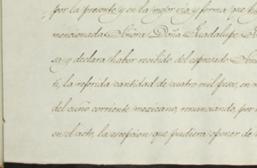 por la presente y en la mejor via y forma que
mencionada Señora Doña Guadalupe
sa y declara haber recibido del expresado Don
te, la referida cantidad de cuatro mil pesos, en
del cuño corriente mexicano, renunciando, por
en el acto, la excepcion que pudiera oponer de